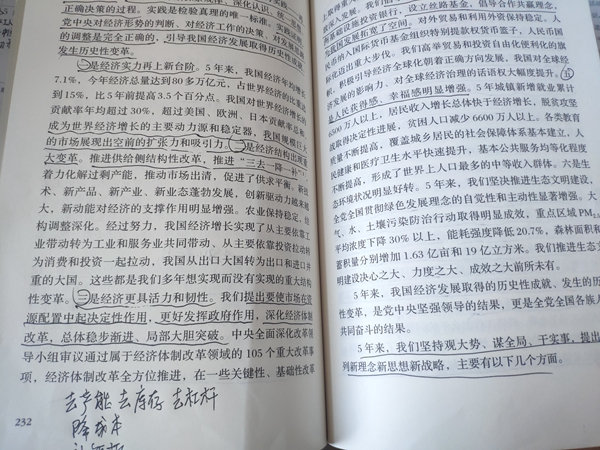 正确决策的过程。实践是检验真理的唯一标准。实践
党中央对经济形势的判断、对经济工作的决策、对发展
的调整是完全正确的，引导我国经济发展取得历史性成就
发生历史性变革。
一是经济实力再上新台阶。5年来，我国经济年均增长
7.1%，今年经济总量达到80多万亿元，占世界经济的比重达
到15%，比5年前提高3.5个百分点。我国对世界经济增长的
贡献率年均超过30%，超过美国、欧洲、日本贡献率总和
成为世界经济增长的主要动力源和稳定器，我国规模巨大
的市场展现出空前的扩张力和吸引力。二是经济结构出现重
大变革。推进供给侧结构性改革，推进“三去一降一补”
着力化解过剩产能，推动市场出清，促进了供求平衡，新技
术、新产品、新产业、新业态蓬勃发展，创新驱动力越来越
大，新动能对经济的支撑作用明显增强。农业保持稳定，
结构调整深化。经过努力，我国经济增长实现了从主要依靠工
业带动转为工业和服务业共同带动、从主要依靠投资拉动转
为消费和投资一起拉动，我国从出口大国转为出口和进口并
重的大国。这些都是我们多年想实现而没有实现的重大结构
性变革。三是经济更具活力和韧性。我们提出要使市场在资
源配置中起决定性作用，更好发挥政府作用，深化经济体制
改革，总体稳步渐进、局部大胆突破。中央全面深化改革领
导小组审议通过属于经济体制改革领域的105个重大改革事
项，经济体制改革全方位推进，在一些关键性、基础性改革
232
去产能 去库存 去杠杆
降成本
深入发展。我们
基础设施投资银行，设立丝路基金，倡导合作共赢理念，
为我国发展拓宽了空间。对外贸易和利用外资保持稳定。人
民币纳入国际货币基金组织特别提款权货币篮子，人民币国
际化迈出重大步伐。我们高举贸易和投资自由化便利化的旗
帜，积极引导经济全球化朝着正确方向发展，我国对全球经
济发展的影响力、对全球经济治理的话语权大幅度提升。五
是人民获得感、幸福感明显增强。5年城镇新增就业累计
6500万人以上，居民收入增长总体快于经济增长，脱贫攻坚
战取得决定性进展，贫困人口减少6600万人以上。各类教育
质量不断提高，覆盖城乡居民的社会保障体系基本建立，人
民健康和医疗卫生水平快速提升，基本公共服务均等化程度
不断提高，形成了世界上人口最多的中等收入群体。六是生
态环境状况明显好转。5年来，我们坚决推进生态文明建设，
全党全国贯彻绿色发展理念的自觉性和主动性显著增强。大
气、水、土壤污染防治行动取得明显成效，重点区域PM2.5
平均浓度下降30%以上，能耗强度降低20.7%，森林面积和
蓄积量分别增加1.63亿亩和19亿立方米。我们推进生态文
明建设决心之大、力度之大、成效之大前所未有。
5年来，我国经济发展取得的历史性成就、发生的历
史性变革，是党中央坚强领导的结果，更是全党全国各族人
共同奋斗的结果。
5年来，我们坚持观大势、谋全局、干实事，提出
列新理念新思想新战略，主要有以下几个方面。